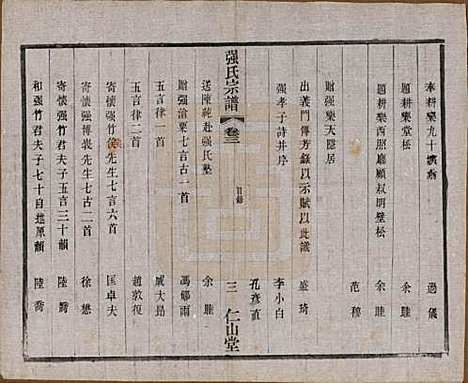 奉耕樂九十 過儀
題耕樂堂松 余䏢
題耕樂西照廳顧叔明壁松 余䏢
贈强樂天隱居 范穆
出義門傳芳錄以示賦以此識 盛琦
强孝子詩并序 李小白
孔彥直
强氏宗譜 卷三 目錄 三 仁山堂
送陳純赴强氏塾 余䏢
贈强滄粟七言古一首 馮娜雨
五言律一首 戚大昂
五言律二首 趙敦復
寄懷强竹 先生七言六首 匡卓夫
寄懷强博裴先生七古一首 徐懋
寄懷强竹君夫子五言三十韻 陸喬
和强竹君夫子七十自述原韻 陸喬